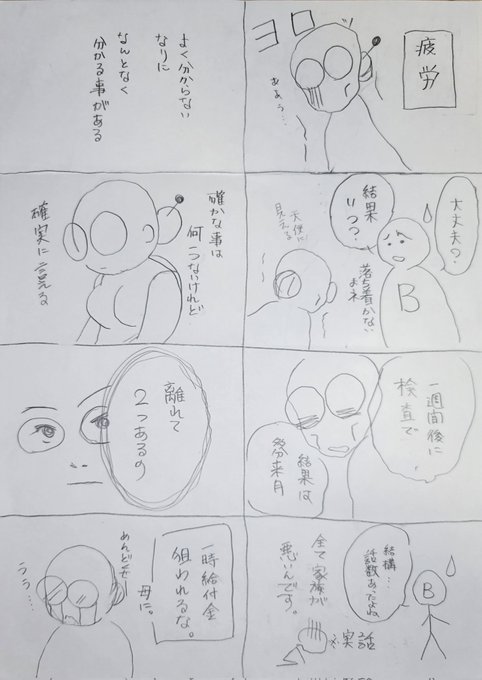 疲労
ヨロ
ああぅ…
大丈夫?
結果
いつ?
落ち着かない
よネ
天使に
見える
B
一週間後に
検査で
結果は
来月
結構…
話数あったよね
B
全て家族が
悪いんです。
※実話
よく分からない
なりに
なんとなく
分かる事がある
確かな事は
何一つないけれど
確実に言える
離れて
2つあるの
一時給付金
狙われるな。
母に。
うう…